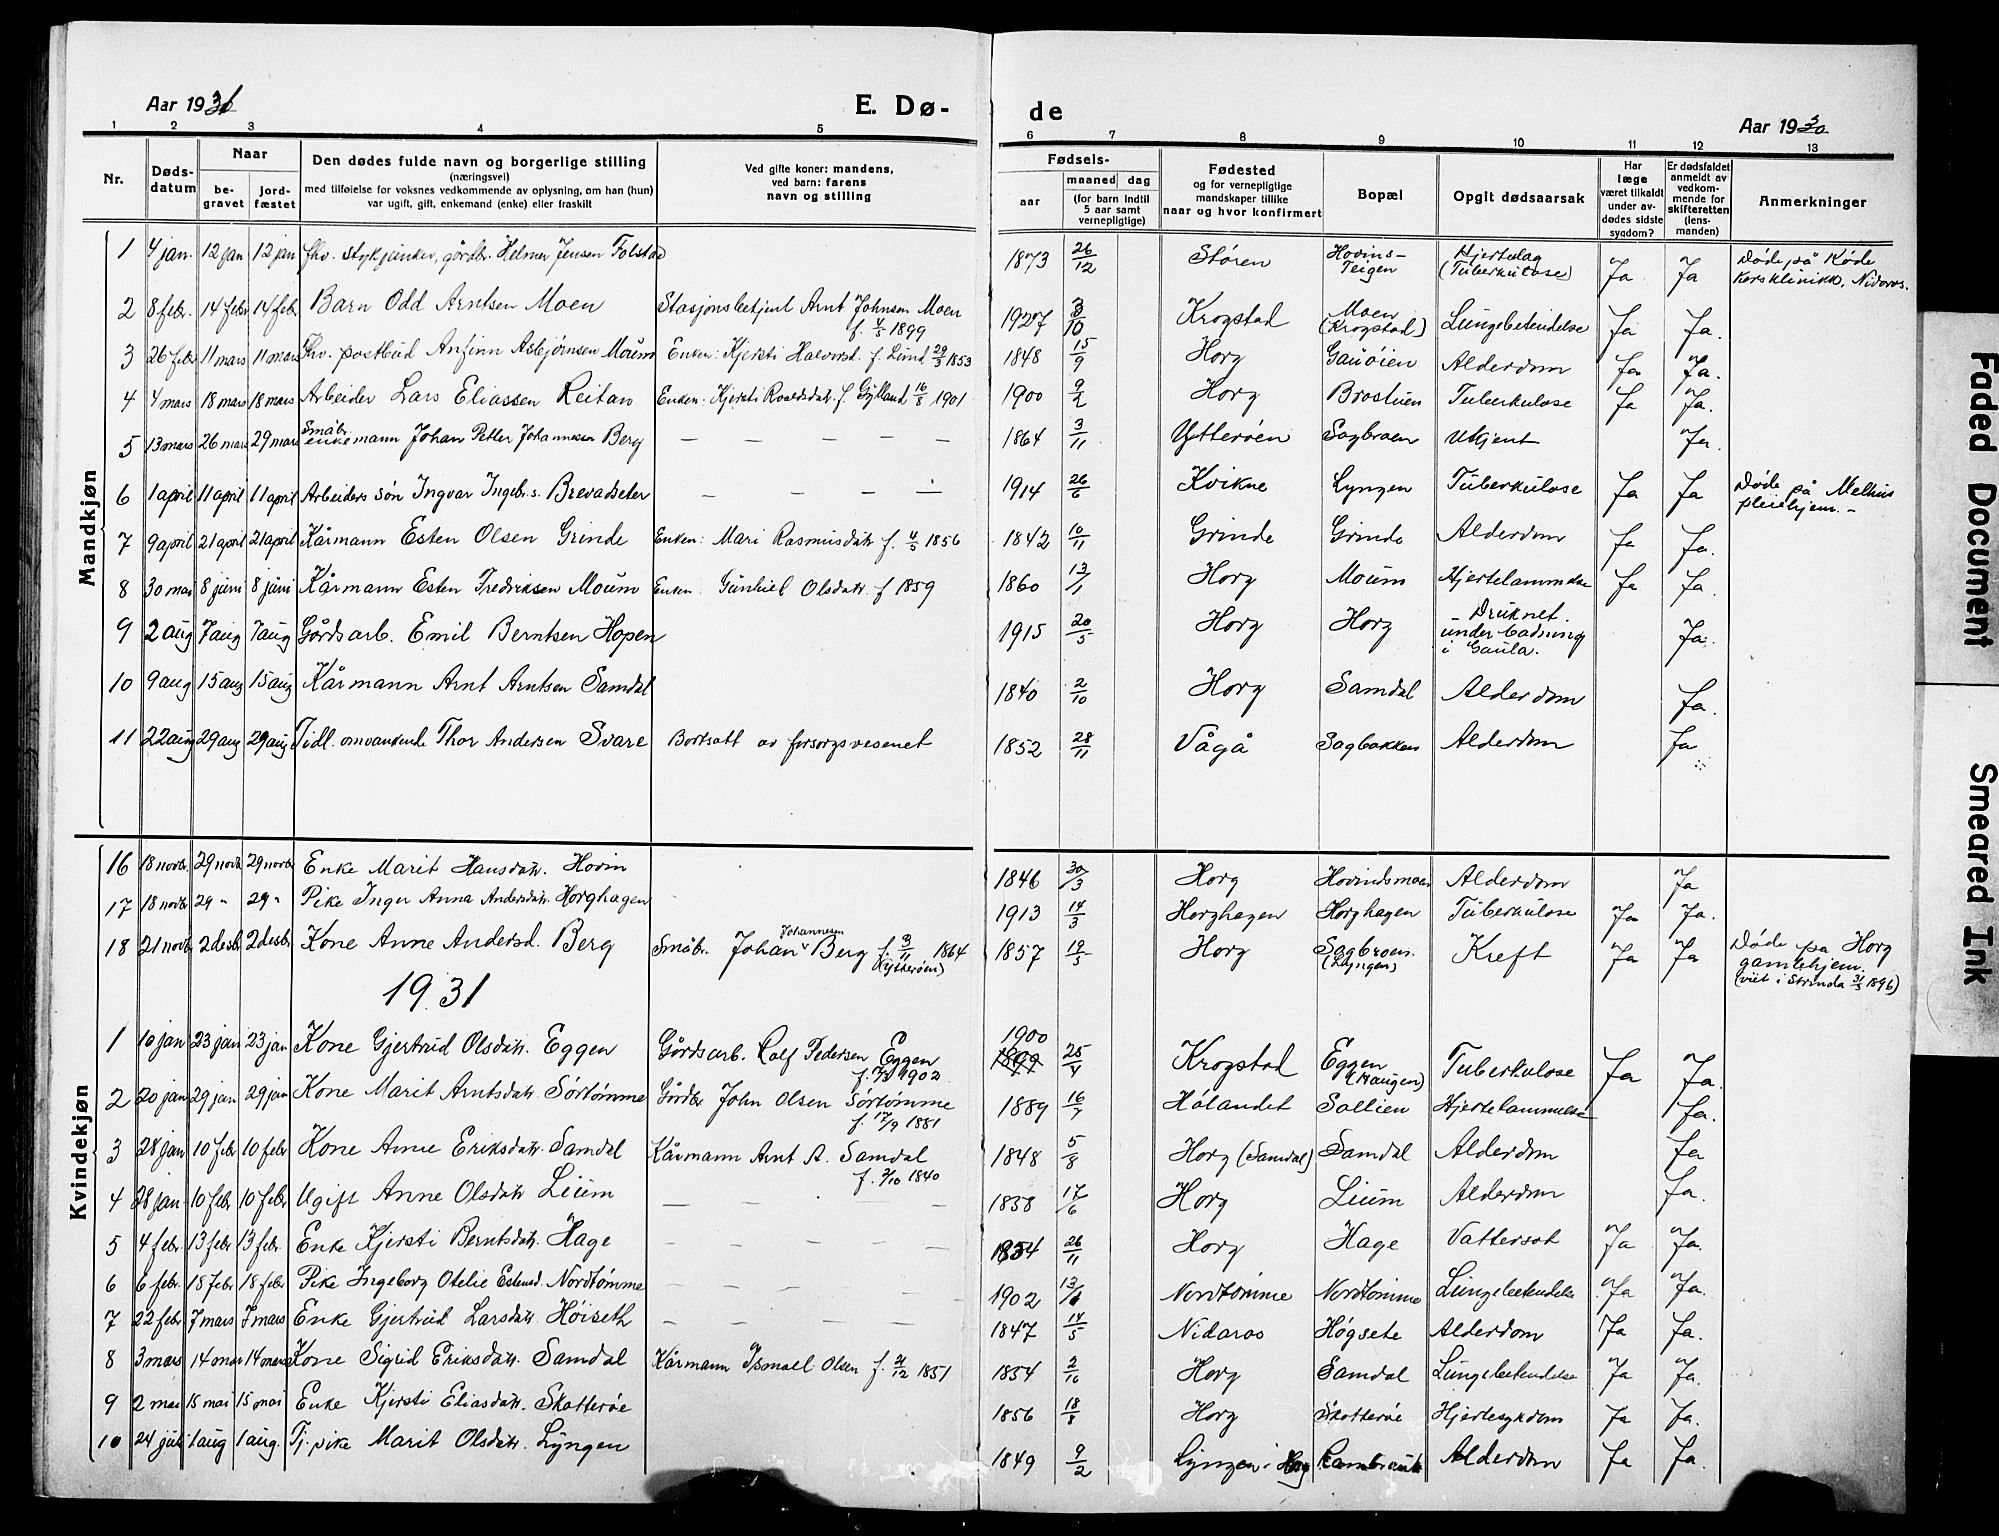 Aar 1931 E. Dø-
de Aar 1930
1 2 3 4 5 6 7 8 9 10 11 12 13
Nr.
Døds-
datum
Naar
be-
gravet
jord-
fæstet
Den dødes fulde navn og borgerlige stilling
(næringsvei)
med tilføielse for voksnes vedkommende av oplysning, om han (hun)
var ugift, gift, enkemand (enke) eller fraskilt
Ved gifte koner: mandens,
ved barn: farens
navn og stilling
Fødsels-
aar
maaned dag
(for barn indtil
5 aar samt
vernepligtige)
Fødested
og for vernepligtige
mandskaper tillike
naar og hvor konfirmert
Bopæl
Opgit dødsaarsak
Har
læge
været tilkaldt
under av-
dødes sidste
sygdom?
Er dødsfaldet
anmeldt av
vedkom-
mende for
skifteretten
(lens-
manden)
Anmerkninger
Mandkjøn
1 4 jan. 12 jan 12 jan fhv. stykjunker, gårdbr. Helmer Jensen Folstad 1873 26/12 Støren Hovins-Teigen Hjerteslag (Tuberkulose) Ja Ja Døde på Røde Korsklinikk, Nidaros.
2 8 febr. 14 febr 14 febr Barn Odd Arntsen Moen Stasjonsbetjent Arnt Johnsen Moen f. 4/5 1899 1927 3/10 Krogstad Moen (Krogstad) Lungebetendelse Ja Ja.
3 26 febr 11 mars 11 mars Fhv. postbud Anfinn Asbjørnsen Moum Enken: Kjersti Halvorsd. f. Lund 29/3 1853 1848 15/9 Horg Gauøien Alderdom Ja Ja.
4 4 mars 18 mars 18 mars Arbeider Lars Eliassen Reitan Enken: Kjersti Roaldsdatr. f. Gylland 16/8 1901 1900 9/2 Horg Brostuen Tuberkulose Ja Ja.
5 13 mars 26 mars 29 mars Småbr. enkemann Johan Petter Johannesen Berg — — — — 1864 3/11 Ytterøen Sagbroen Ukjent Ja.
6 1 april 11 april 11 april Arbeiders søn Ingvar Ingebr.s. Brevadseter — — — — 1914 26/6 Kvikne Lyngen Tuberkulose Ja Ja Døde på Melhus pleiehjem. -
7 9 april 21 april 21 april Kårmann Esten Olsen Grinde Enken: Mari Rasmusdatr f. 4/5 1856 1842 10/11 Grinde Grinde Alderdom Ja Ja.
8 30 mai 8 juni 8 juni Kårmann Esten Fredriksen Moum Enken: Gunhild Olsdatr f 1859 1860 13/1 Horg Moum Hjertelammelse Ja Ja.
9 2 aug 7 aug 7 aug Gårdsarb. Emil Berntsen Hopen 1915 20/5 Horg Horg - Druknet. under badning i Gaula. Ja.
10 9 aug 15 aug 15 aug Kårmann Arnt Arntsen Samdal 1840 2/10 Horg Samdal Alderdom Ja.
11 22 aug 29 aug 29 aug Tidl. omvankende Thor Andersen Svare Bortsatt av forsorgsvesenet 1852 28/11 Vågå Sagbakken Alderdom Ja
Kvindekjøn
16 18 novbr. 29 novbr 29 novbr Enke Marit Hansdatr. Hovin 1846 30/3 Horg Hovindsmoen Alderdom Ja
17 18 novbr 29 " 29 " Pike Inger Anna Andersdatr. Horghagen 1913 14/3 Horghagen Horghagen Tuberkulose Ja Ja.
18 21 novbr 2 desbr 2 desbr Kone Anne Andersd. Berg Småbr. Johan Johannesen Berg f. 3/11 1864 (Ytterøen) 1857 19/5 Horg Sagbroen (Lyngen) Kreft Ja Ja Døde på Horg gamlehjem. (viet i Strinda 31/5 1896)
1931
1 16 jan 23 jan 23 jan Kone Gjertrud Olsdatr. Eggen Gårdsarb. Rolf Pedersen Eggen f. 7/3 1902 1900 1899 25/4 Krogstad Eggen (Haugen) Tuberkulose Ja Ja.
2 20 jan 29 jan 29 jan Kone Marit Arntsdatr. Sørtømme Gårdbr John Olsen Sørtømme f. 17/9 1881 1889 16/7 Hølandet Sollien Hjertelammelse Ja.
3 28 jan 10 febr 10 febr Kone Anne Eriksdatr. Samdal Kårmann Arnt A. Samdal f. 2/10 1840 1848 5/8 Horg (Samdal) Samdal Alderdom Ja
4 28 jan 10 febr 10 febr. Ugift Anne Olsdatr Lium — — — 1838 17/6 Horg Lium Alderdom Ja.
5 4 febr. 13 febr 13 febr. Enke Kjersti Berntsdatr. Hage — — — — 1834 26/11 Horg Hage Vattersot Ja Ja.
6 6 febr. 18 febr 18 febr. Pike Ingeborg Otelie Estensd. Nordtømme — — — — 1902 13/6 Nordtømme Nordtømme Lungebetendelse Ja Ja.
7 22 febr 7 mars 7 mars Enke Gjertrud Larsdatr. Høiseth — — — — 1847 14/5 Nidaros Høgsete Alderdom Ja Ja.
8 3 mars 14 mars 14 mars Kone Sigrid Eriksdatr. Samdal Kårmann Ismael Olsen f. 21/12 1851 1854 2/10 Horg Samdal Lungebetendelse Ja Ja.
9 2 mai 15 mai 15 mai Enke Kjersti Eliasdatr. Skotterøe 1856 18/8 Horg Skotterøe Hjertesykdom Ja Ja.
10 24 juli 1 aug 1 aug. Tj. pike Marit Olsdatr. Lyngen 1849 9/2 Lyngen i Horg Alderdom Ja Ja.
Faded Document
Smeared Ink